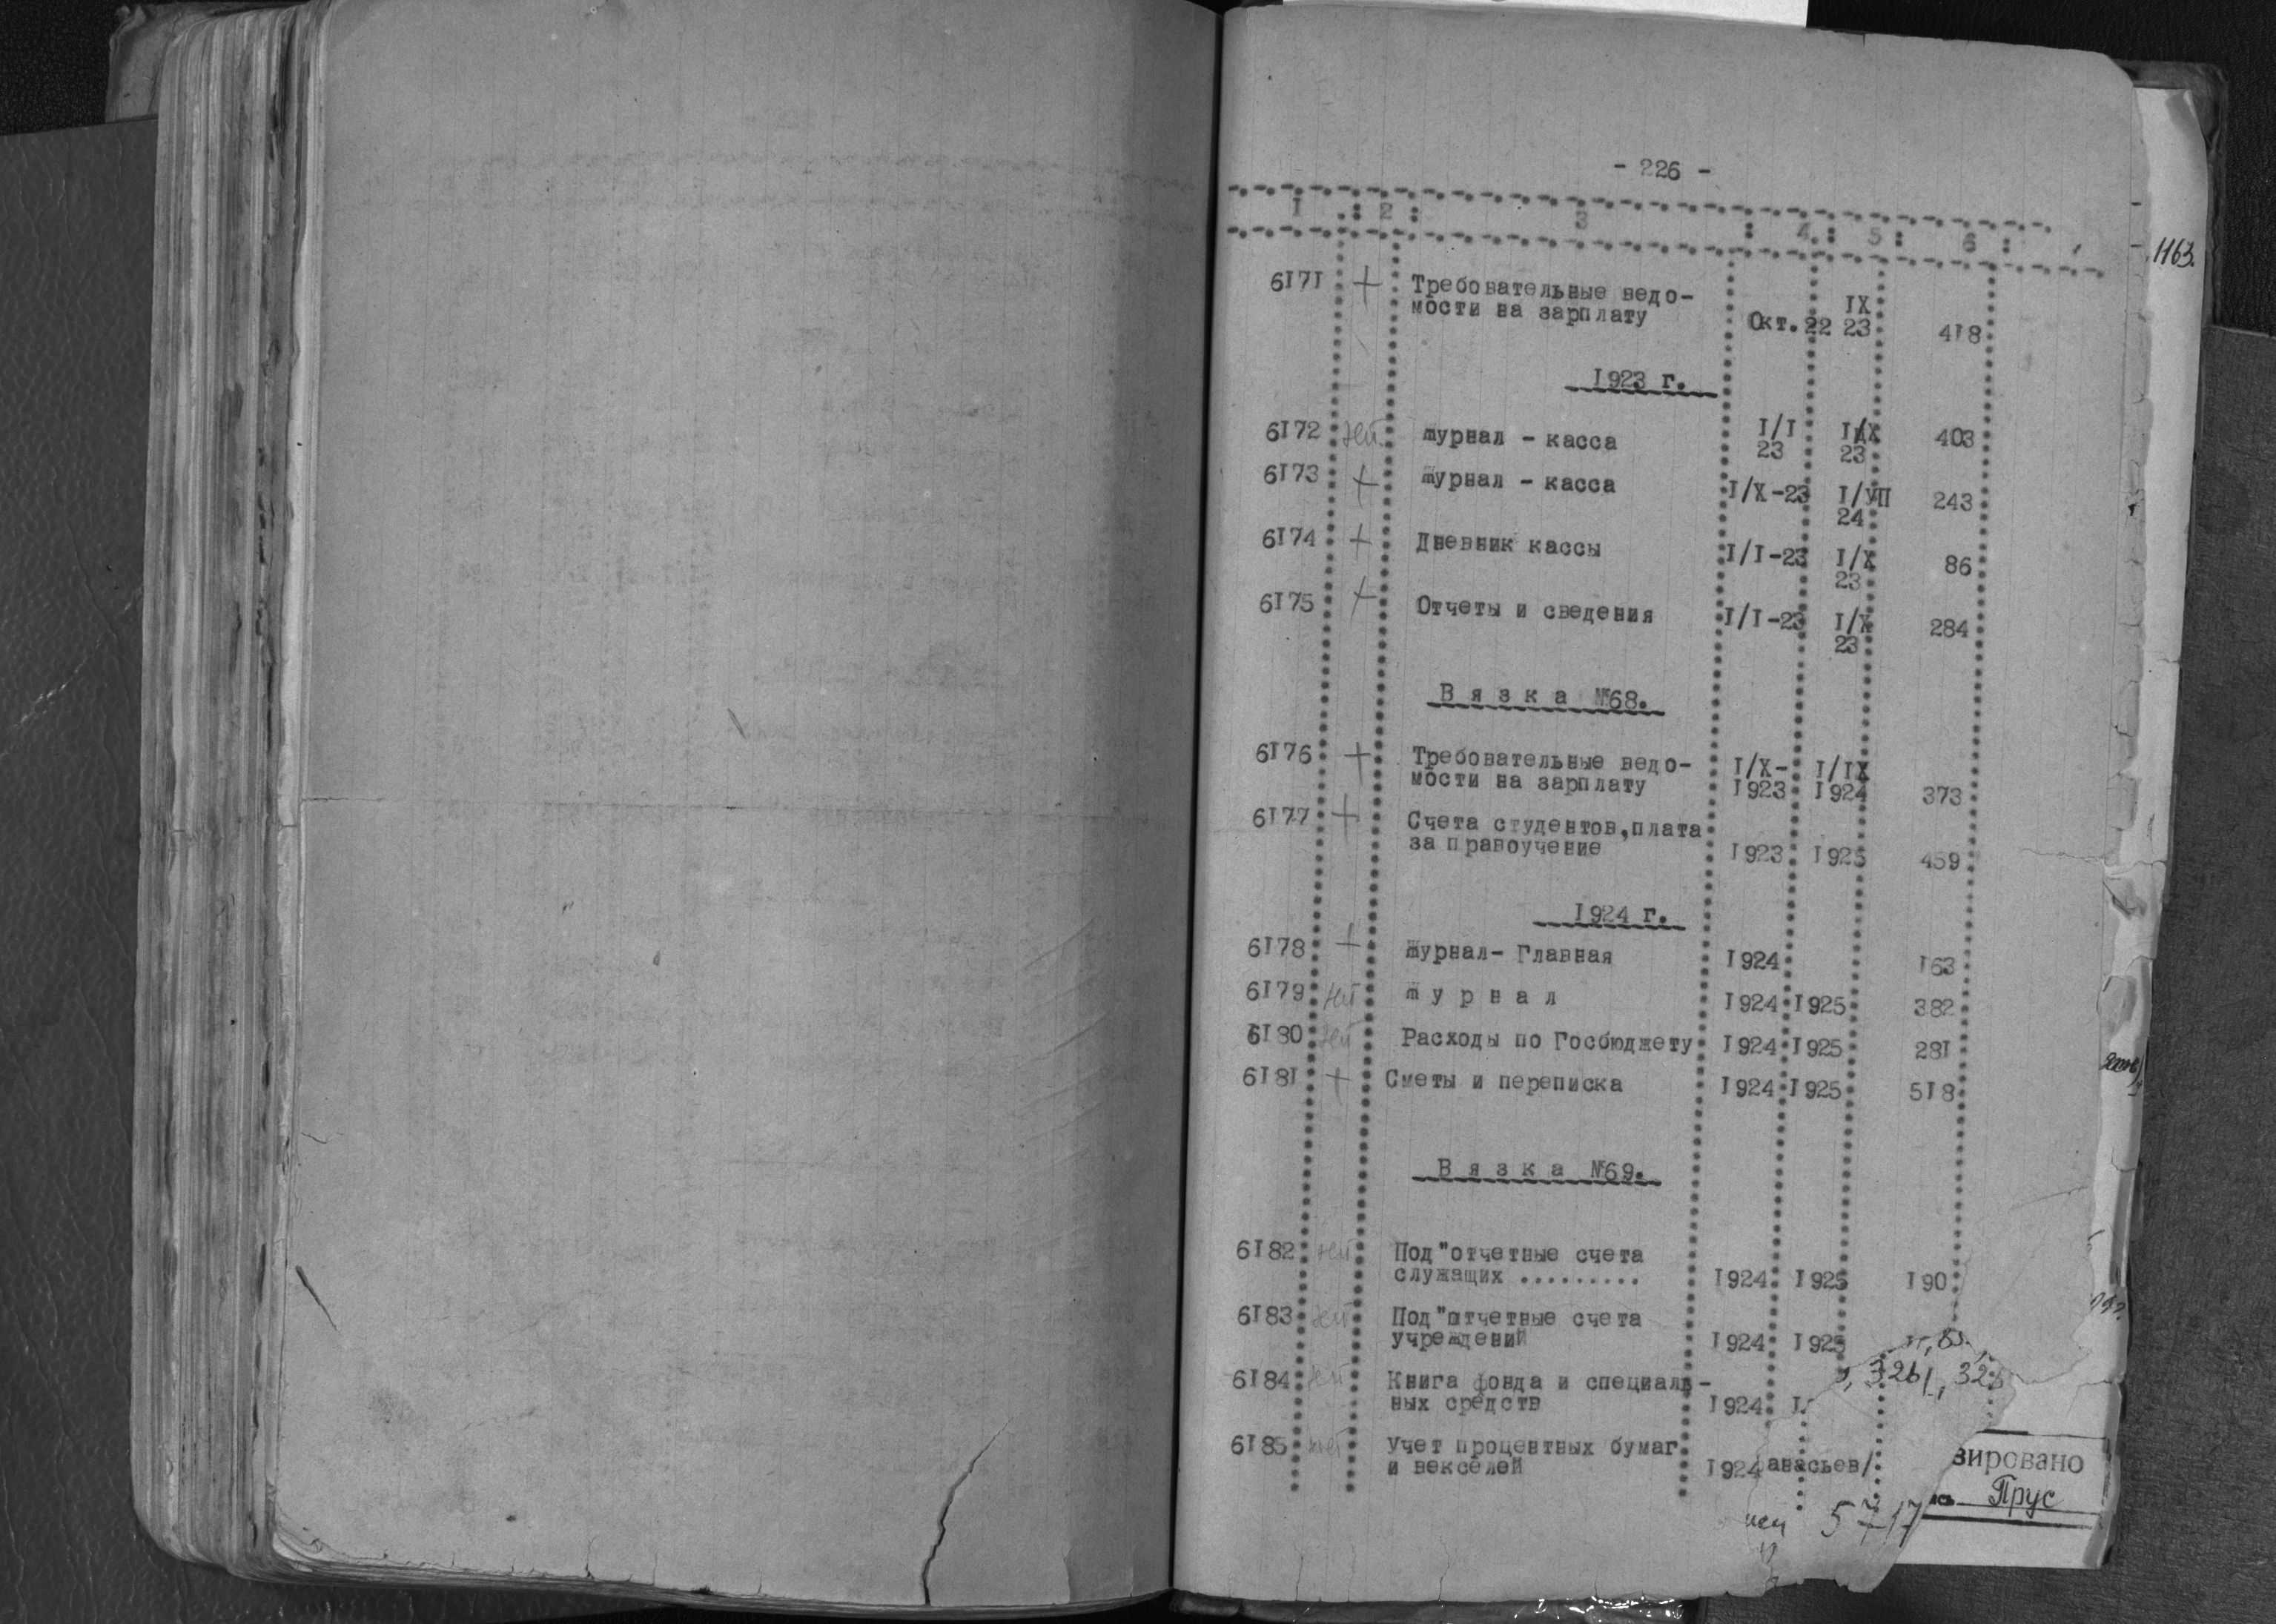 - 226 -
I : 2 : 3 : 4 : 5 : 6 :
1163.
6I7I + Требовательные ведо-
мости на зарплату Окт.22 IX 23 4I8
I923 г.
6I72 нет Журнал - касса I/I 23 I/IX 23 403
6I73 + Журнал - касса I/X-23 I/УП 24 243
6I74 + Дневник кассы I/I-23 I/X 23 86
6I75 + Отчеты и сведения I/I-23 I/X 23 284
Вязка №68.
6I76 + Требовательные ведо- I/X- I/IX
мости на зарплату I923 I924 373
6I77 + Счета студентов,плата
за правоучение I923 I925 459
I924 г.
6I78 + Журнал- Главная I924 I63
6I79 нет Журнал I924 I925 382
6I80 нет Расходы по Госбюджету I924 I925 28I
6I8I + Сметы и переписка I924 I925 5I8
Вязка №69.
6I82 нет Под"отчетные счета
служащих ......... I924 I925 I90
6I83 нет Под"отчетные счета
учреждений I924 I925
6I84 нет Книга фонда и специаль- 326/, 326
ных средств I924 I
6I85 нет Учет процентных бумаг
и векселей I924 анасьев/
зировано
Прус
5717